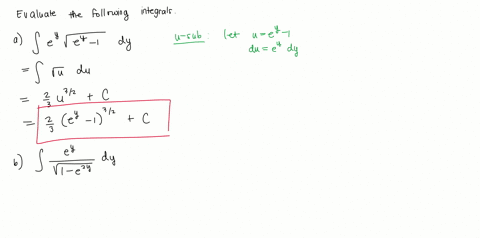 Evaluate the following integrals.
a) ∫ e^y √(e^y - 1) dy u-sub: let u = e^y - 1
du = e^y dy
= ∫ √u du
= 2/3 u^(3/2) + C
= 2/3 (e^y - 1)^(3/2) + C
b) ∫ e^y / √(1 - e^(2y)) dy